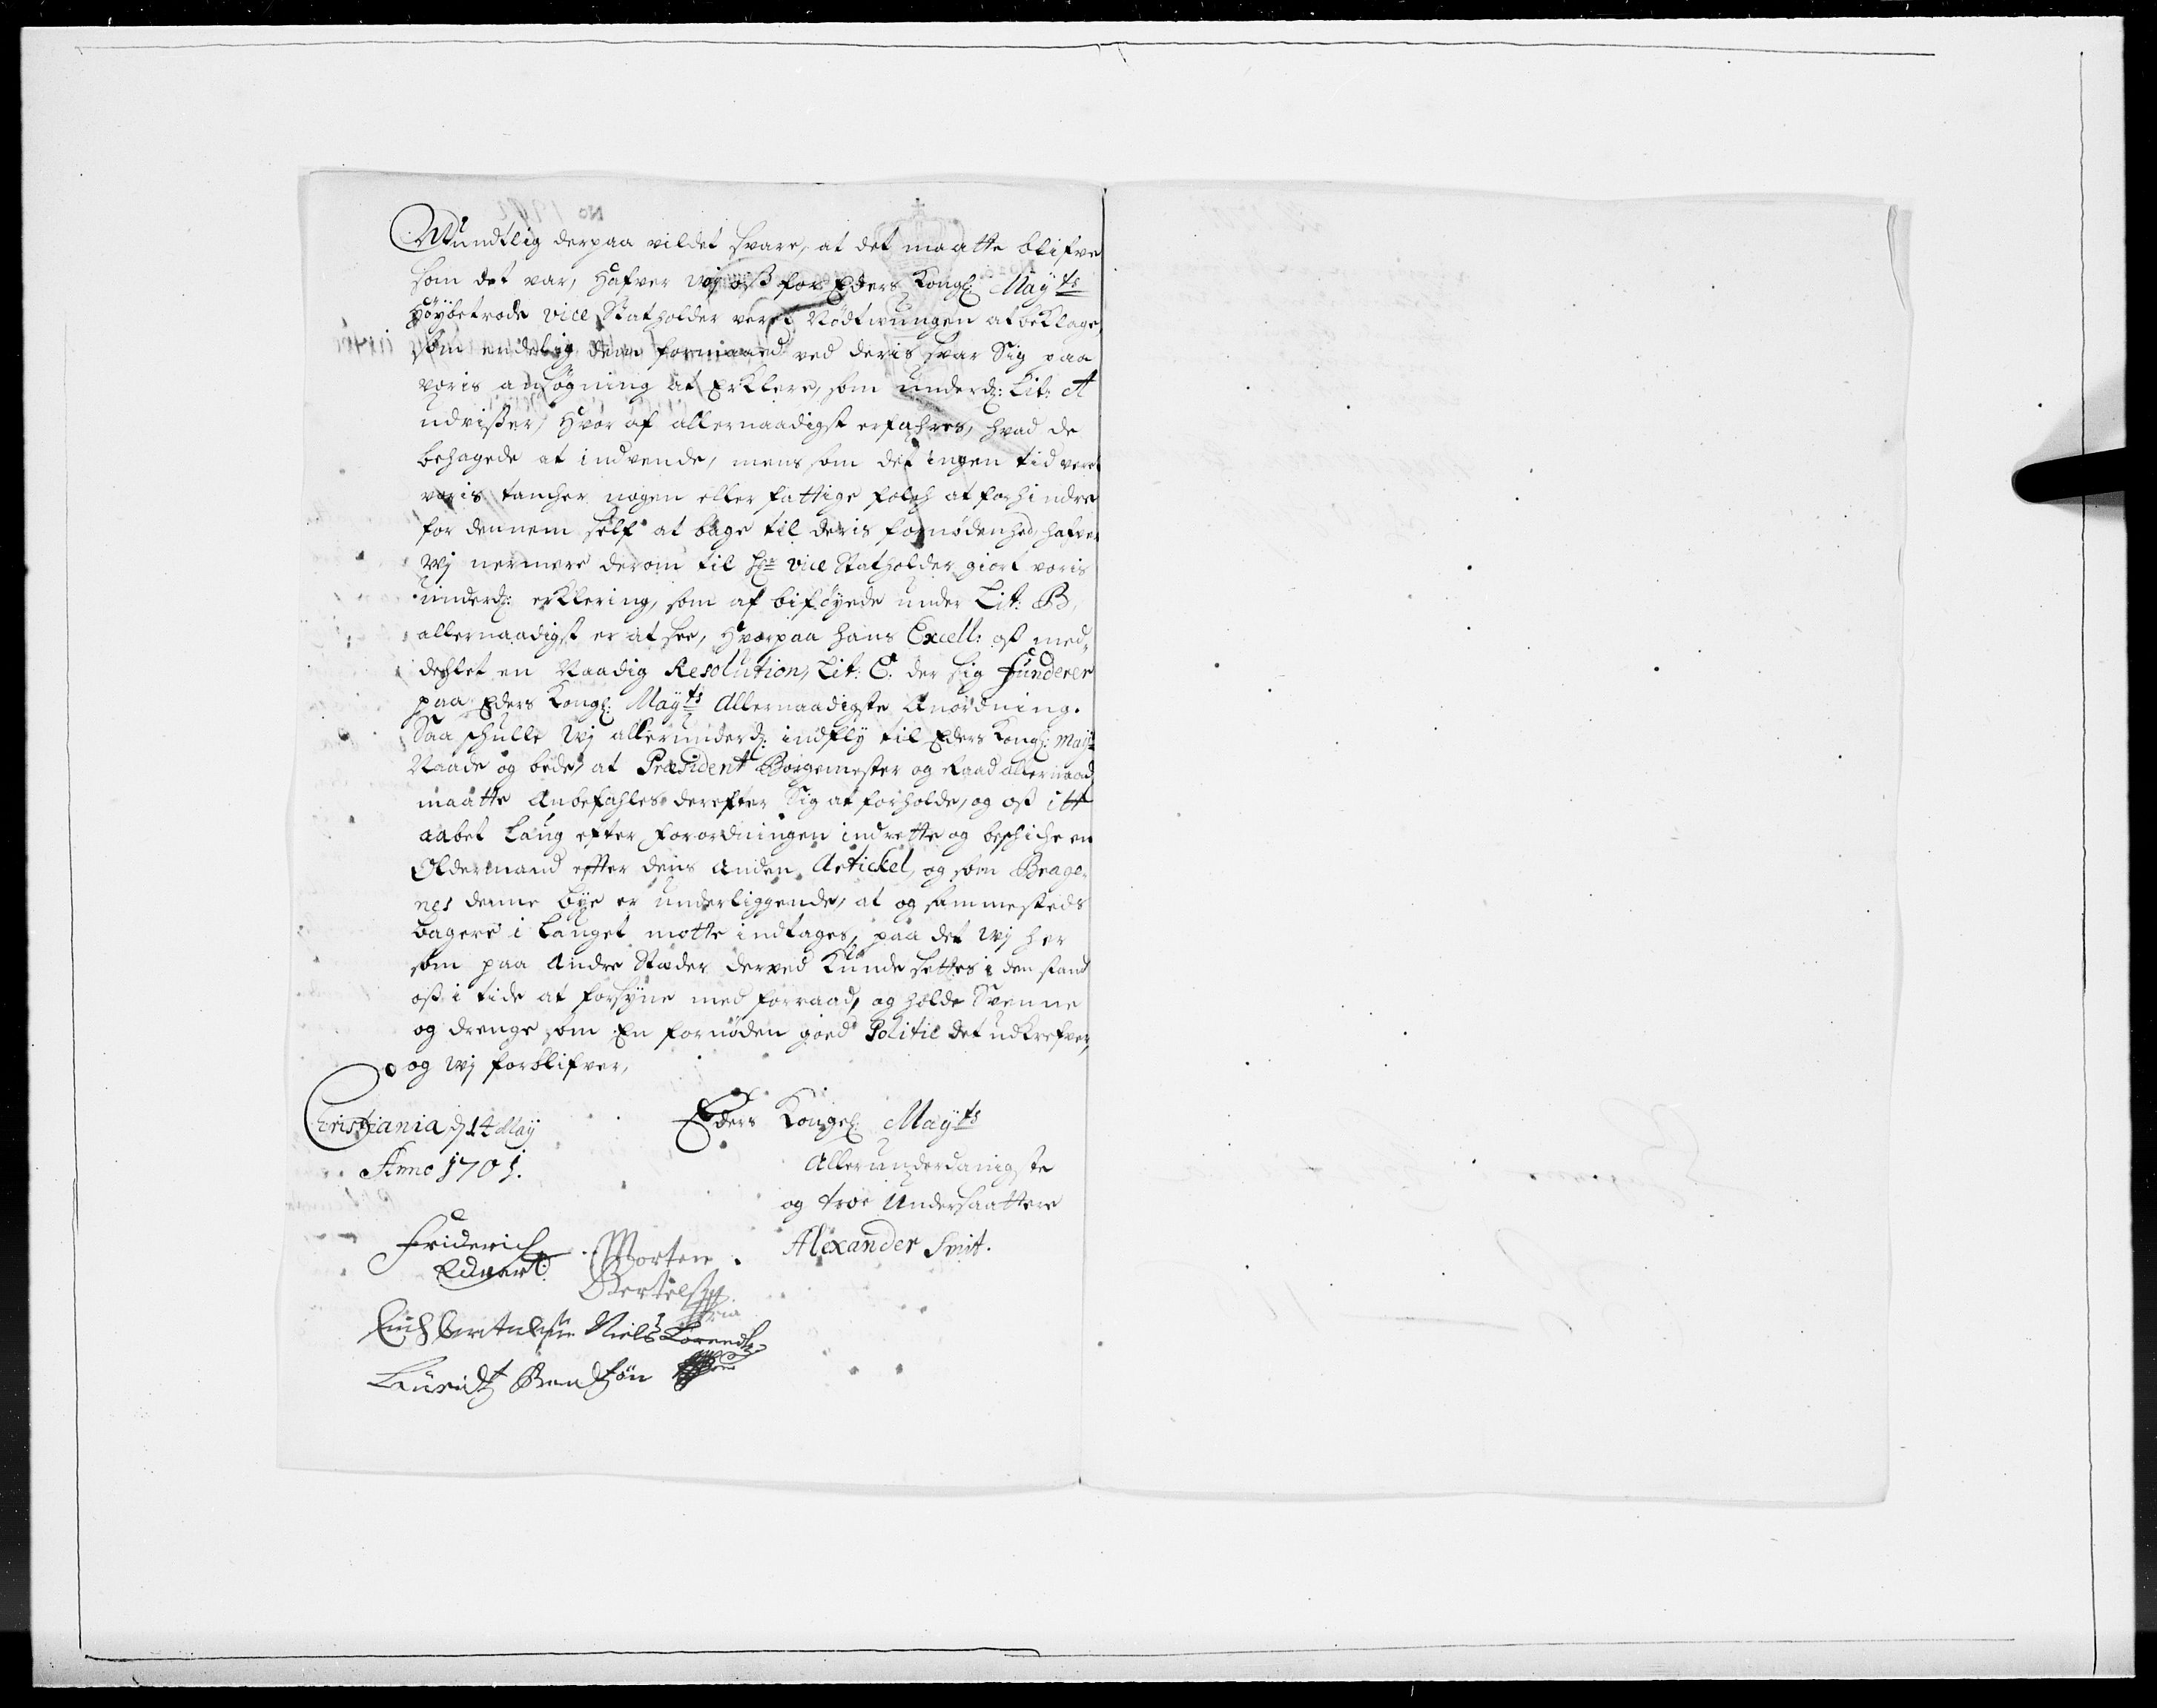 Mundtlig derpaa vildet svare, at det maatte blifve
som det var, hafver wj oß for Eders Kongl: Mayts
höybetrode vice Statholder veret Nödtwungen at beklage,
som endelig dem formaaed ved deris svar Sig paa
voris ansögning at Erklere, som underd: Lit: A
udvißer, Hvor af allernaadigst erfahres, hvad de
behagede at indvende, mens som det ingen tid veret
voris tancher nogen eller fattige folch at forhindre
for dennem self at bage til deris fornödenhed, hafver
Wj nermere derom til Hr vice Statholder giort voris
underd: erklering, som af bifoyede under Lit: B,
allernaadigst er at see, Hvorpaa hans Excell: oß med-
deelet en Naadig Resolution, Lit: C. der sig funderer
paa Eders Kongl: Mayts Allernaadigste Anordning.
Saa schulle Wj allerunderd: indfly til Eders Kongl: Mayts
Naade og bede, at Præsident Borgemester og Raad allernaad:
maatte Anbefahles derefter Sig at forholde, og oß itt
aabet Laug efter forordningen indrette og beschiche en
Oldermand effter dens Anden Artickel, og som Brage-
nes denne bye er underliggende, at og sammesteds
bagere i Lauget motte indtages, paa det wj her
som paa Andre Stæder derved kunde settes i den stand
oß i tide at forsyne med forraad, og holde Svenne
og drenge som En fornöden goed Politie det udkrefver,
og wj forblifver,
Christiania d 14 May
Anno 1701.
Eders Kongel: Mayts
Allerunderdanigste
og troe Undersaattere
Friderich
Edvart
Morten
Bertelsen
Alexander Smit.
Niels Lorendtz
Lauridtz Bendtzön